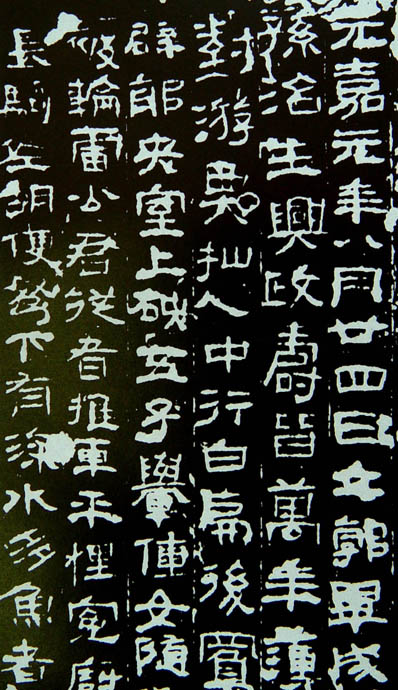 元嘉元年八月廿四日立郭畢成
孫治生興政壽皆萬年薄
對游人中行白虎後鳳
辟邪央室上硤五子轝使女隨
被輪雷公君從者推車平理冤廚
長騎左胡使弩下有深水多魚者